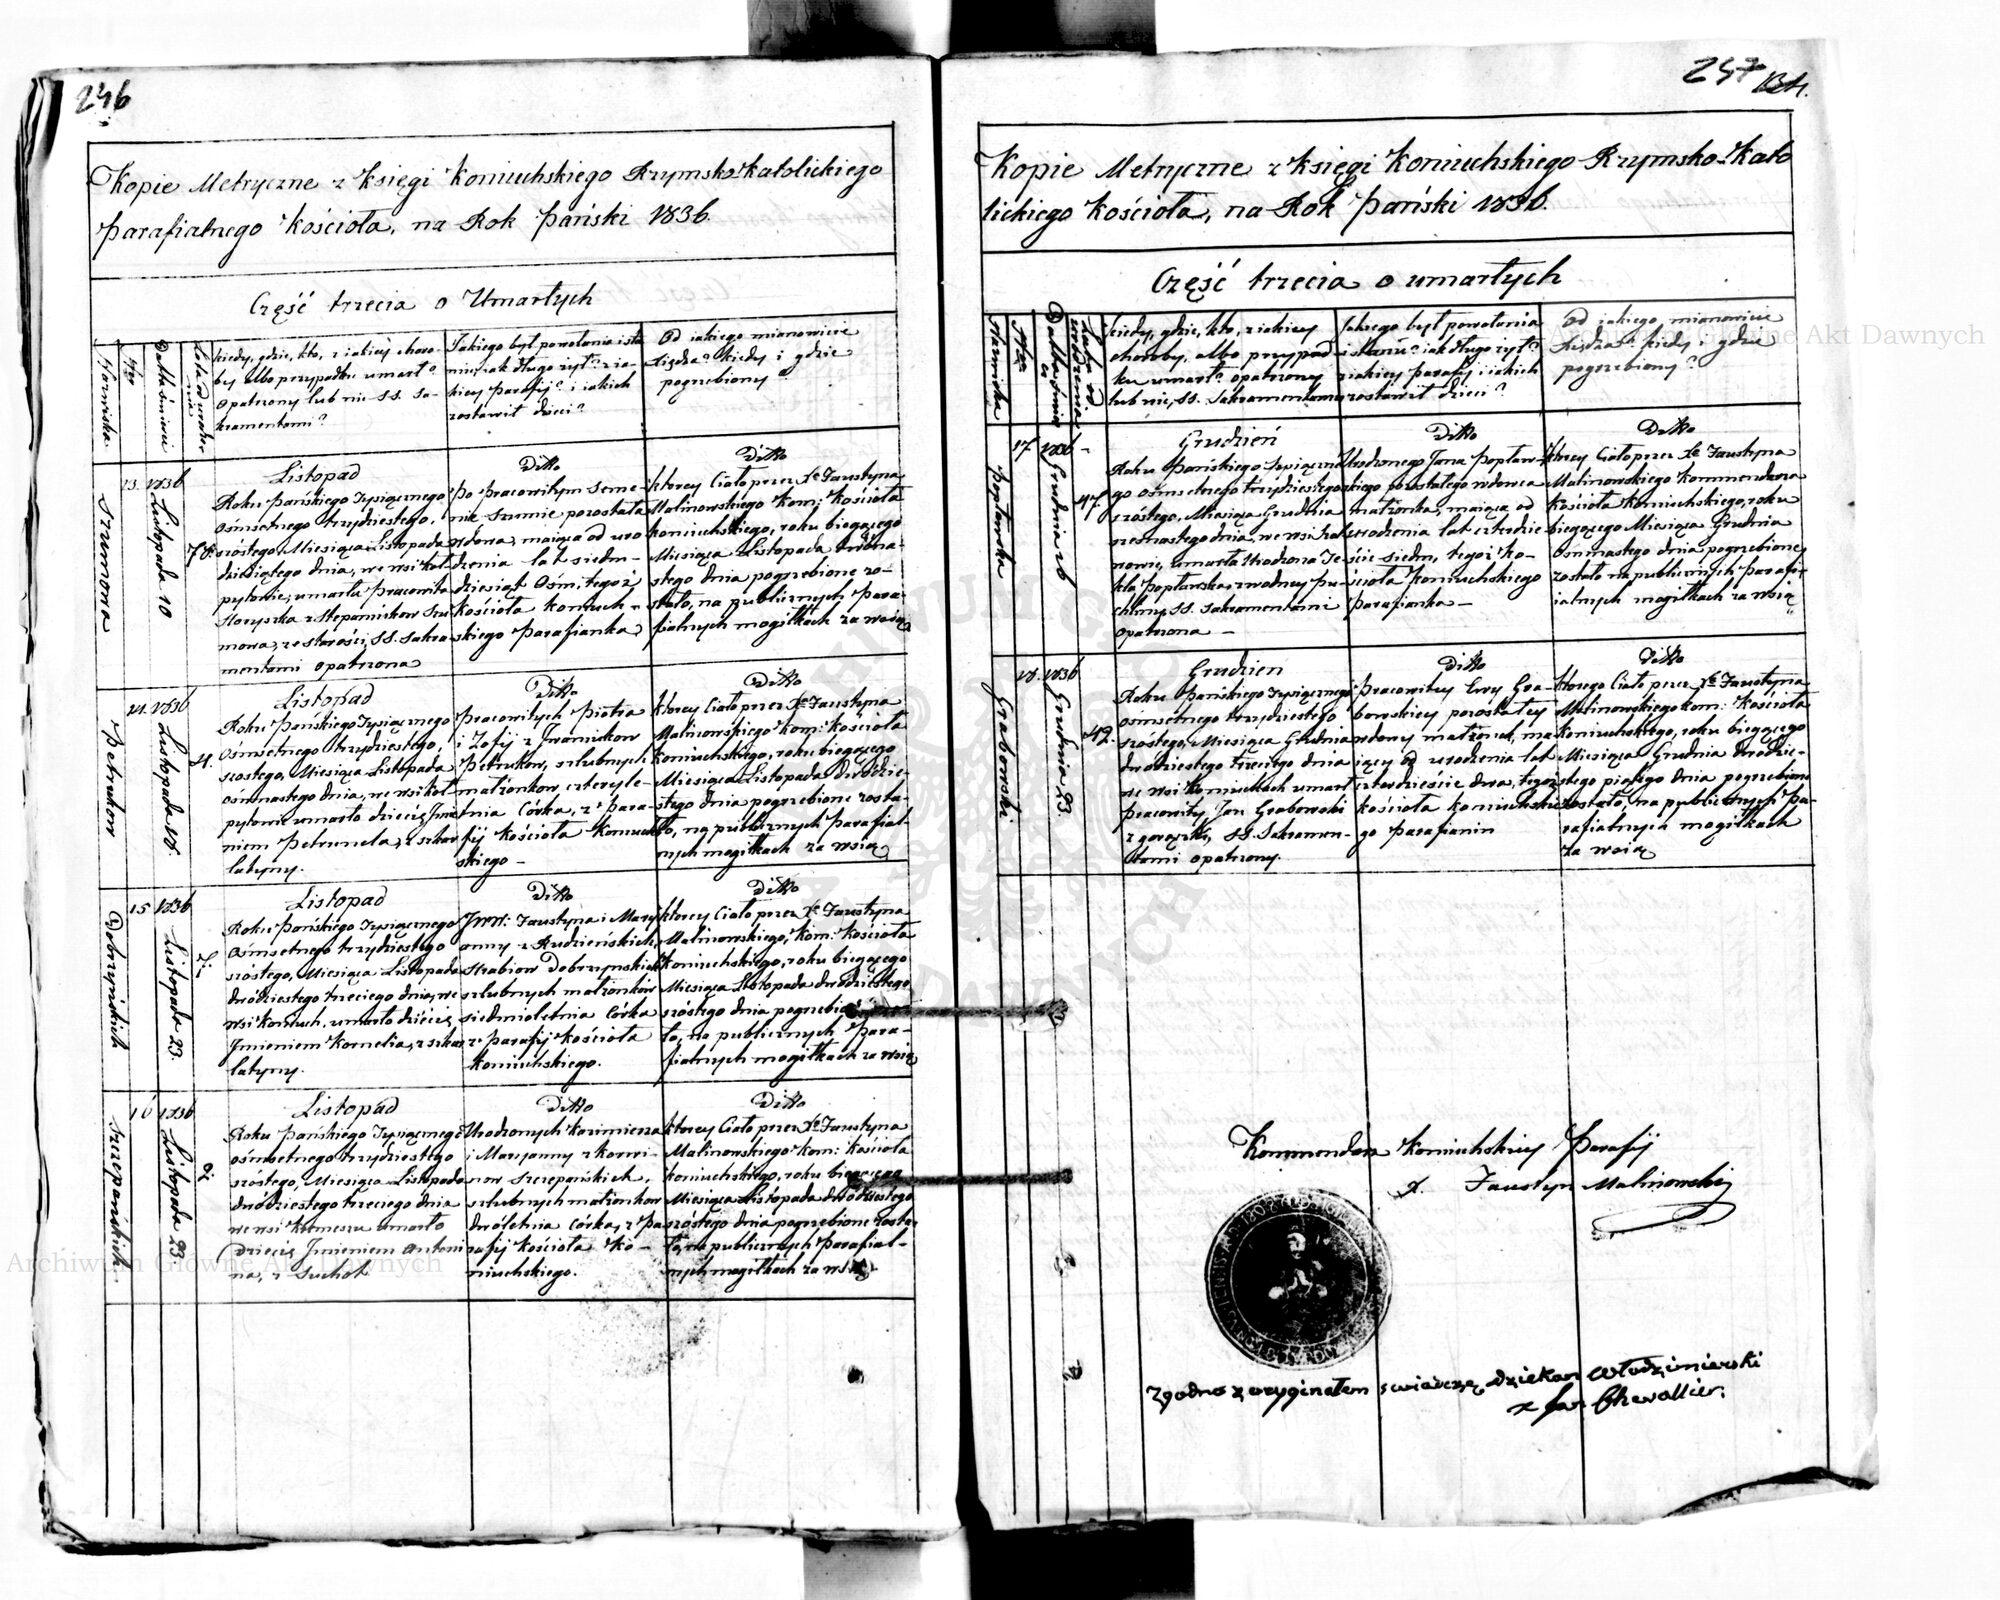 246
Kopie Metryczne z Księgi Koniuchskiego Rzymsko-Katolickiego
Parafialnego Kościoła, na Rok Pański 1836.
Część trzecia o Umarłych
Nazwiska
Nro
Data śmierci
Kiedy, gdzie, kto, z iakiey choro-
by albo przypadku umarł?
opatrzony lub nie SS. Sa-
kramentami?
Jakiego był powołania i sta
nu, iak długo żył? z ia-
kiey Parafij? i iakich
zostawił dzieci?
Od iakiego mianowicie
Xiędza? kiedy i gdzie
pogrzebiony?
Szumowa
13. 1836 Listopada 10
78.
Listopad
Roku Pańskiego Tysiącznego
Ośmsetnego trzydziestego,
szóstego, Miesiąca Listopada
dziesiątego dnia, we wsi Koł
pytowie, umarła Pracowita
Horyszka z Stepanników Szu
mowa, ze starości, SS. Sakra-
mentami opatrzona
Ditto
Po Pracowitym Seme
nie Szumie pozostała
Wdowa, maiąca od uro
dzenia lat siedm-
dziesiąt Ośm, tegoż
Kościoła Koniuch-
skiego Parafianka,
Ditto
ktorey Ciało przez Xa Faustyna
Malinowskiego Kom: Kościoła
Koniuchskiego, roku biegącego
Miesiąca Listopada dwóna-
stego dnia pogrzebione zo-
stało, na publicznych Para-
fialnych mogiłkach za wsią
Petruków
14. 1836 Listopada 18
4.
Listopad
Roku Pańskiego Tysiącznego
Ośmsetnego trzydziestego,
szostego, Miesiąca Listopada
Ośmnastego dnia, we wsi Koł
pytowie umarło dziecię Imie
niem Petrunela, z szkar
latyny.
Ditto
Pracowitych Piotra
i Zofij z Iwaników
Petruków, szlubnych
małżonków czteryle-
tnia Córka, z Para-
fij Kościoła Koniuch
skiego -
Ditto
ktorey Ciało przez Xa Faustyna
Malinowskiego Kom: Kościoła
Koniuchskiego, roku biegącego
Miesiąca Listopada dwodzie-
stego dnia pogrzebione zosta-
ło, na publicznych Parafial-
nych mogiłkach za wsią
Dobrzyńskich
15 1836 Listopada 23
7.
Listopad
Roku Pańskiego Tysiącznego
Ośmsetnego trzydziestego
szóstego, Miesiąca Listopada
dwódziestego trzeciego dnia, we
wsi Koniuch, umarło dziécię,
Imieniem Kornelia, z szkar
latyny.
Ditto
JWW: Faustyna i Mary
anny z Rudzieńskich,
Hrabiow Dobrzynskich
szlubnych małżonków
siedmioletnia Córka
z Parafij Kościoła
Koniuchskiego.
Ditto
ktorey Ciało przez Xa Faustyna
Malinowskiego, Kom: Kościoła
Koniuchskiego, roku biegącego
Miesiąca Listopada dwodziestego
szóstego dnia
ło, na publicznych Para-
fialnych mogiłkach za wsią
Szczepańskich
16 1836 Listopada 23
2.
Listopad
Roku Pańskiego Tysiącznego
ośmsetnego trzydziestego
szóstego, Miesiąca Listopada
dwódziestego trzeciego dnia
we wsi umarło
Dziecię Imieniem Antoni
na, z Suchot
Ditto
Urodzonych Kazimierza
i Maryanny z Korwi-
now Szczepańskich,
szlubnych małżonkow
dwóletnia Córka, z Pa
rafij Kościoła Ko-
niuchskiego.
Ditto
ktorey Ciało przez Xa Faustyna
Malinowskiego Kom: Kościoła
Koniuchskiego, roku biegącego
Miesiąca Listopada dwódziestego
szóstego dnia pogrzebione zosta
ło, na publicznych Parafial-
nych mogiłkach za wsią
247
Kopie Metryczne z Księgi Koniuchskiego Rzymsko-Kato
lickiego Kościoła, na Rok Pański 1836.
Część trzecia o umarłych
Nazwiska
Nro
Data śmierci
Lata od urodzenia
Kiedy, gdzie, kto, z iakiey
choroby, albo przypad
ku umarł? opatrzony
lub nie, SS. Sakramentami
Jakiego był powołania
i stanu? iak długo żył?
z iakiey parafij i iakich
zostawił dzieci?
Od iakiego mianowicie
Xiędza? kiedy i gdzie
pogrzebiony?
Popławska
17 1836 Grudnia 16
47.
Grudzień
Roku Pańskiego Tysiączne
go ośmsetnego trzydziestego
szóstego, Miesiąca Grudnia
szesnastego dnia, we wsi
nowie, umarła Urodzona Te
kla Popławska, z wodney pu
chliny, SS. Sakramentami
opatrzona -
Ditto
Urodzonego Jana Popław-
skiego pozostałego wdowca
małżonka, maiąca od
urodzenia lat czterdzie
ście siedm, tegoż Ko-
ścioła Koniuchskiego
Parafianka -
Ditto
ktorey Ciało przez Xa Faustyna
Malinowskiego Kommendarza
Kościoła Koniuchskiego, roku
biegącego Miesiąca Grudnia
Ośmnastego dnia pogrzebione
zostało na publicznych Parafi-
ialnych mogiłkach za wsią
Grabowski
18. 1836 Grudnia 23.
42.
Grudzień
Roku Pańskiego Tysiącznego
ośmsetnego trzydziestego
szóstego, Miesiąca Grudnia
dwodziestego trzeciego dnia
we wsi Koniuchach umarł
Pracowity Jan Grabowski
z gorączki, SS. Sakramen-
tami opatrzony.
Ditto
Pracowitey Ewy Gra-
bowskiey pozostałey
wdowy małżonek, ma
iący od urodzenia lat
czterdzieście dwa, tegoż
kościoła Koniuchskie
go Parafianin
Ditto
ktorego Ciało przez Xa Faustyna
Malinowskiego Kom: Kościoła
Koniuchskiego, roku biegącego
Miesiąca Grudnia dwodzie-
stego piątego dnia pogrzebione
zostało, na publicznych Pa-
rafialnych mogiłkach
za wsią
Kommendarz Koniuchskiey Parafij
X. Faustyn Malinowski
Zgodno z oryginałem swiadczę, dziekan Włodzimierski
X Jan Chevallier.
Archiwum Główne Akt Dawnych
Archiwum Główne Akt Dawnych